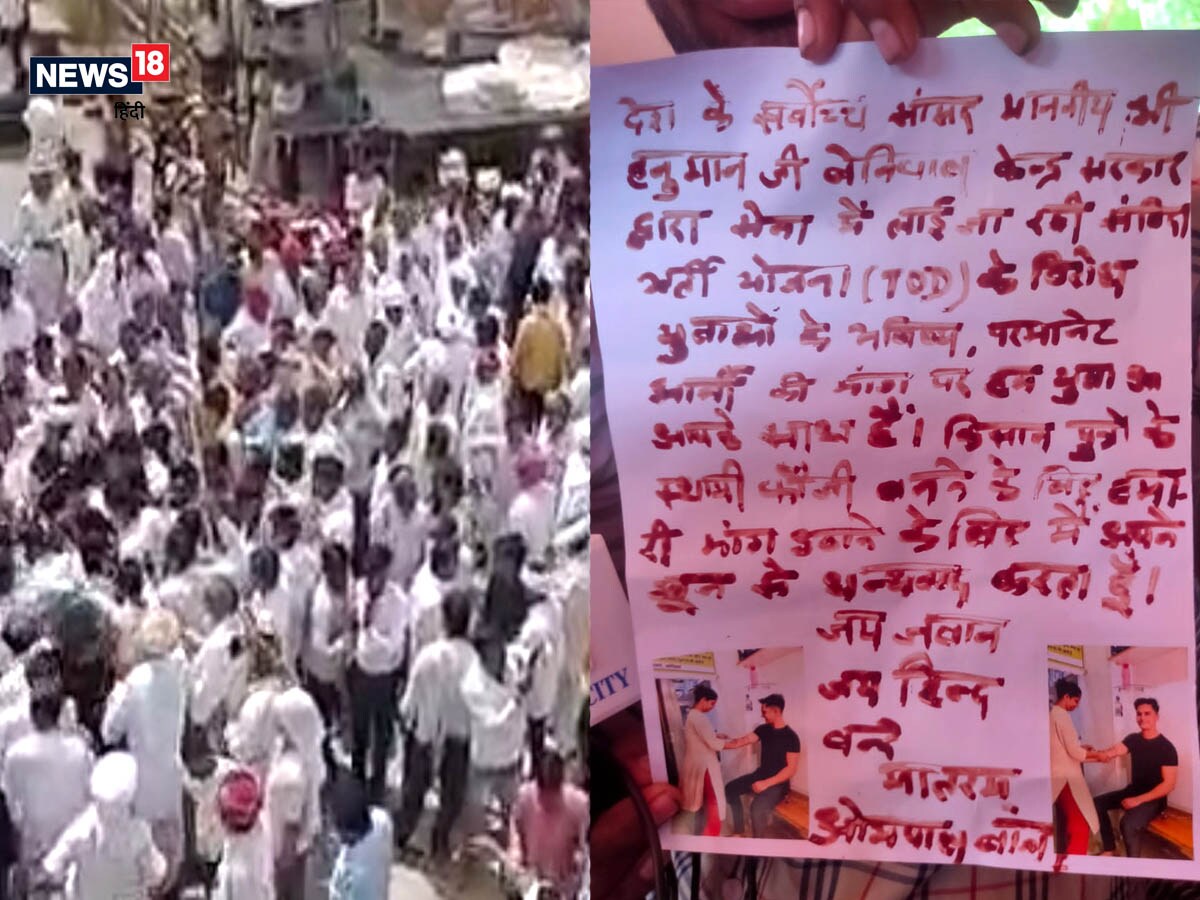 NEWS 18
हिंदी
देश के सर्वोच्च सांसद माननीय श्री
हनुमान जी बेनिवाल केन्द्र सरकार
द्वारा सेना में लाई जा रही संविदा
भर्ती योजना (TOD) के विरोध
युवाओं के भविष्य, परमानेट
भर्ती की मांग पर हम युवा
आपके साथ हैं। किसान पुत्रो के
स्थायी फौजी बनने के लिए हमा-
री मांग उठाने के लिए में अपने
खून से धन्यवाद करता हूँ।
जय जवान
जय हिन्द
वन्दे
मातरम्
CITY